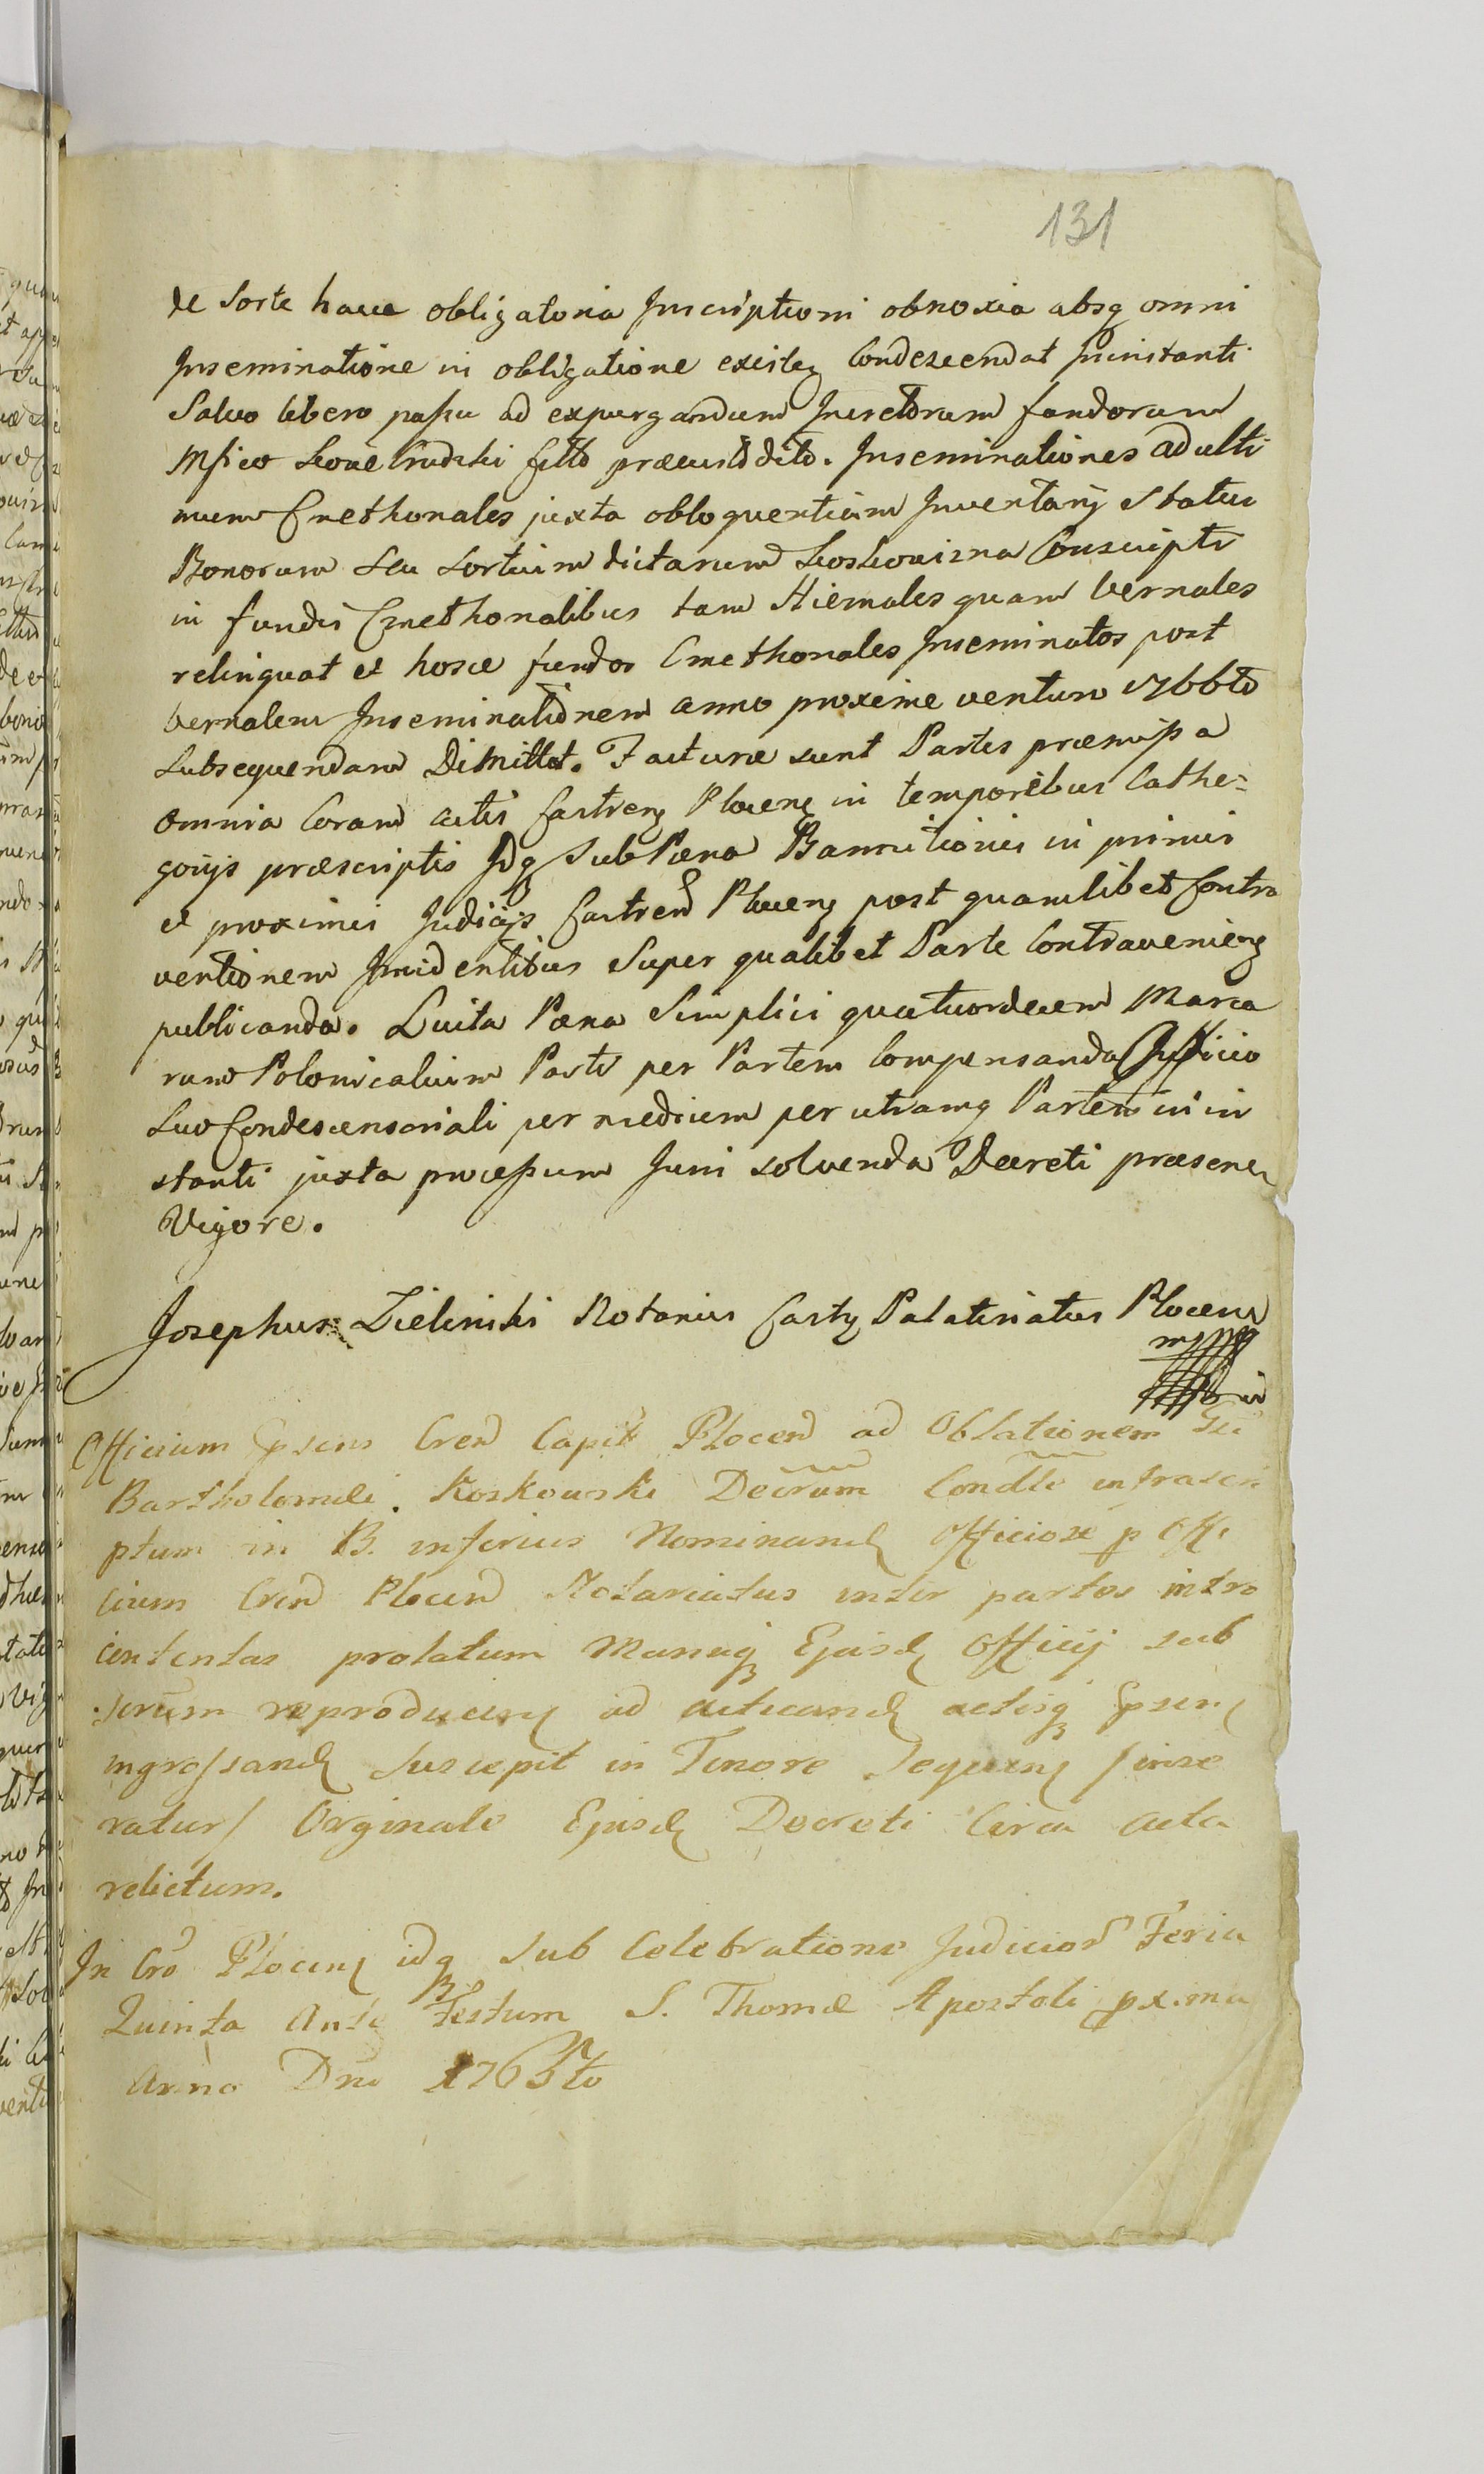 131
de Sorte hacce obligatoria Inscriptioni obnoxia absq omni
Inseminatione in obligatione existen Condescendat inistanti
Salvo libero passu ad expurgandum Insectorum fundorum
Mfico fetto. Inseminationes ad ulti
mum Cmethonales juxta obloquentiam Inventarij Status
Bonorum seu Sortium dictarum Koskowizna Conscripti
in fundis Cmethonalibus tam Hiemales quam vernales
relinquat et hosce fundos Cmethonales Inseminatos post
vernalem Inseminationem anno proxime venturo 1766to
Subsequendam Dimittet. Facturæ sunt Partes præmissa
omnia Coram actis Castren Plocen in temporibus Cathe=
gorijs præscriptis Idq Sub Pæna Bannitionis in primis
et proximis Judicijs Castren Plocen post quamlibet Contra
ventionem Incidentibus Super qualibet Parte Contravenien
publicanda. Luita Pæna Simplici quatuordecem Marca
rum Polonicalium Parti per Partem Compensanda Officio
Suo Condescensoriali per medium per utramq Partem in in
stanti juxta processum Juris solvenda Decreti præsenn
Vigore.
Josephus Zielinski Notarius Castr Palatinatus Plocens
mpp
Officium Epsens Cren Capit Plocen ad Oblationem Gsi
Bartholomei. Koskowski Decrum Condlle infrascri
ptum in B. inferius Nominand Officiose p Offi
cium Cren Plocen Notariatus inter partes intro
contentas prolatum Manuq Ejusd Officij sub
scrum reproducen ad acticand actisq Epsen
ingrossand Suscepit in Tenore Sequen /inse
ratur/ Orginale Ejusd Decreti Circa acta
relictum.
In Cro Plocen idq sub Celebratione Judicior Feria
Quinta Ante Festum S. Thomæ Apostoli pxima
Anno Dni 1765to